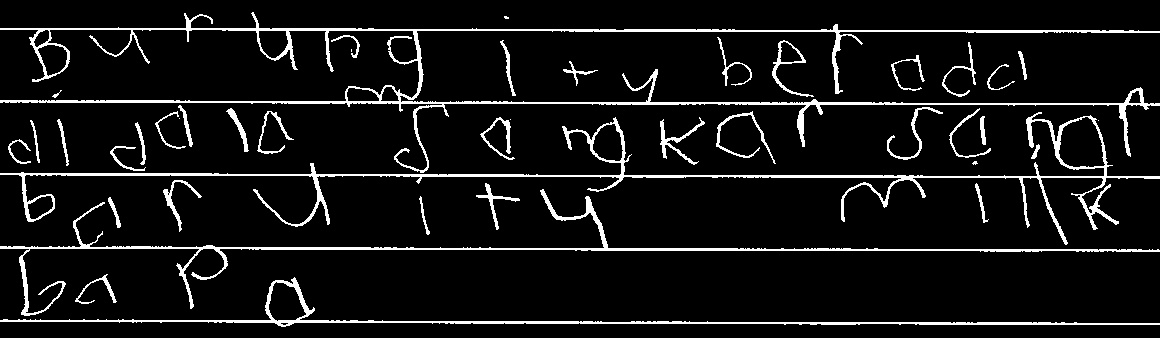 Burung ity berada
di dalam sangkar sangr
baru ity milik
bapa